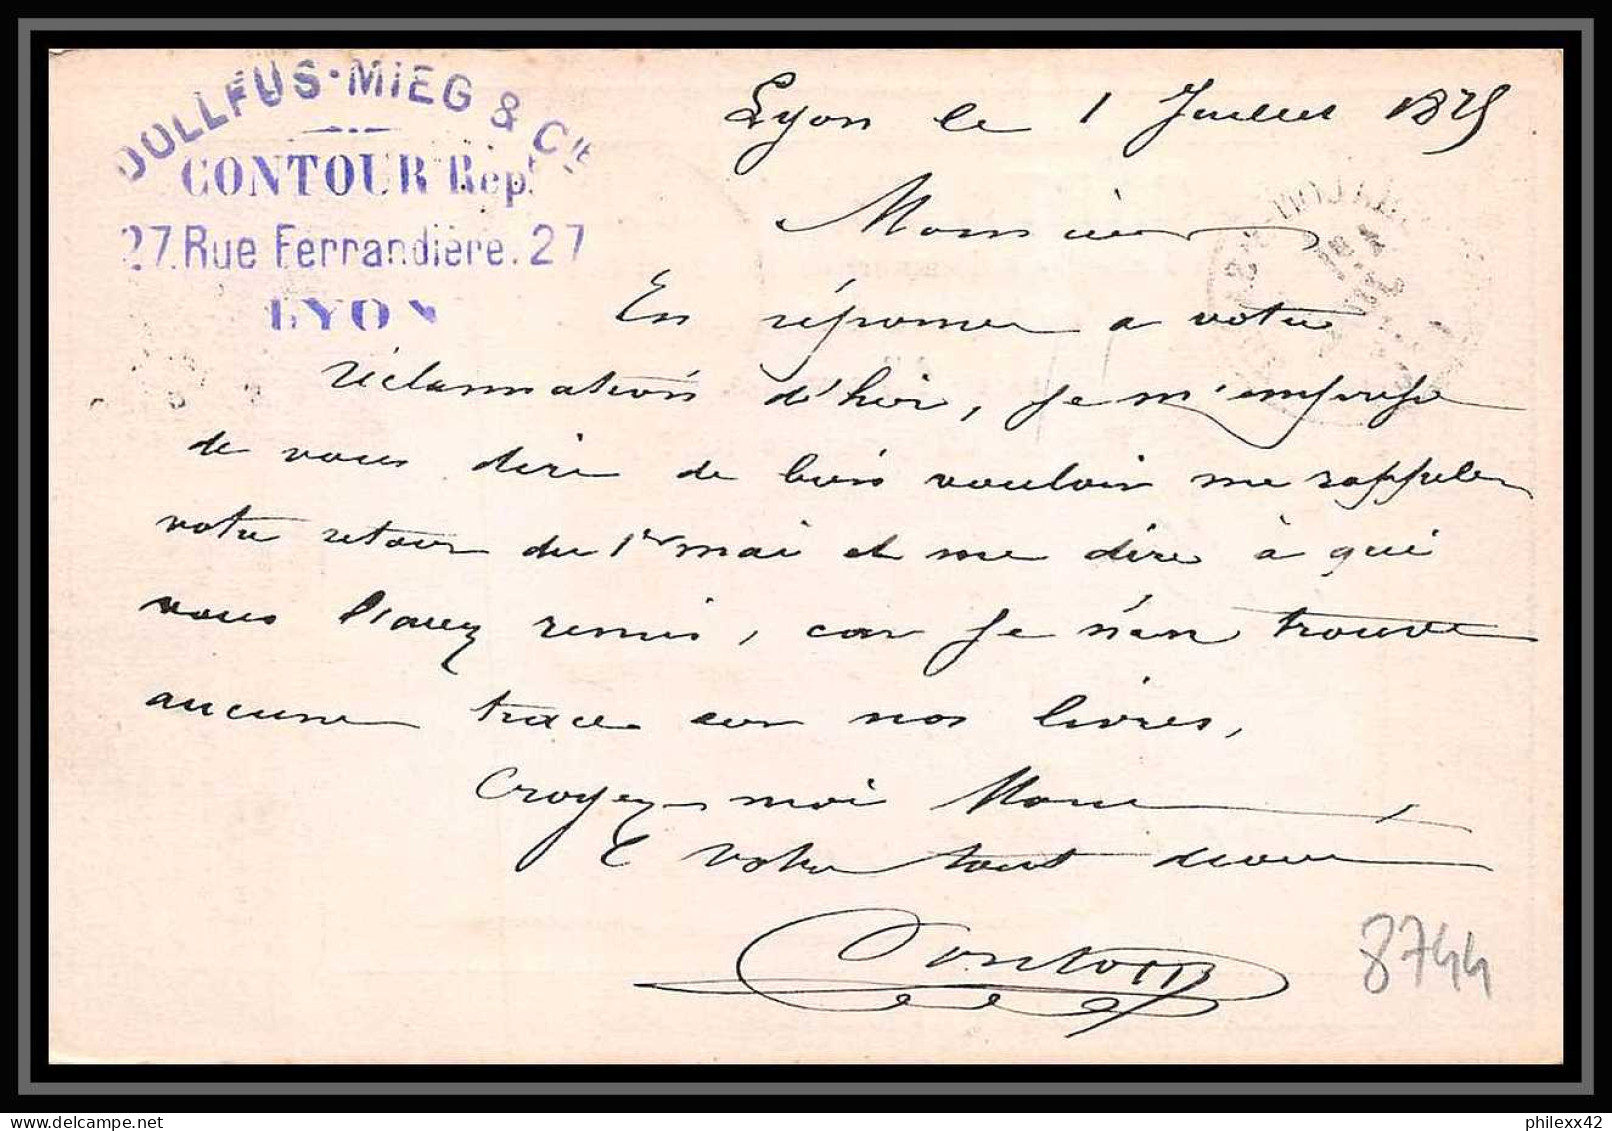 DOLLFUS-MIEG & Cie
CONTOUR Rept
27. Rue Ferrandière. 27
LYON
Lyon le 1 Juillet 1875
Monsieur
En réponse a votre
réclamation d'hier, je m'empresse
de vous dire de bien vouloir me rappeler
votre retour du 1er mai et me dire à qui
vous l'avez remis, car je n'en trouve
aucune trace sur nos livres,
Croyez moi Monsieur
votre tout dévoué
Contour
8744
philexx42